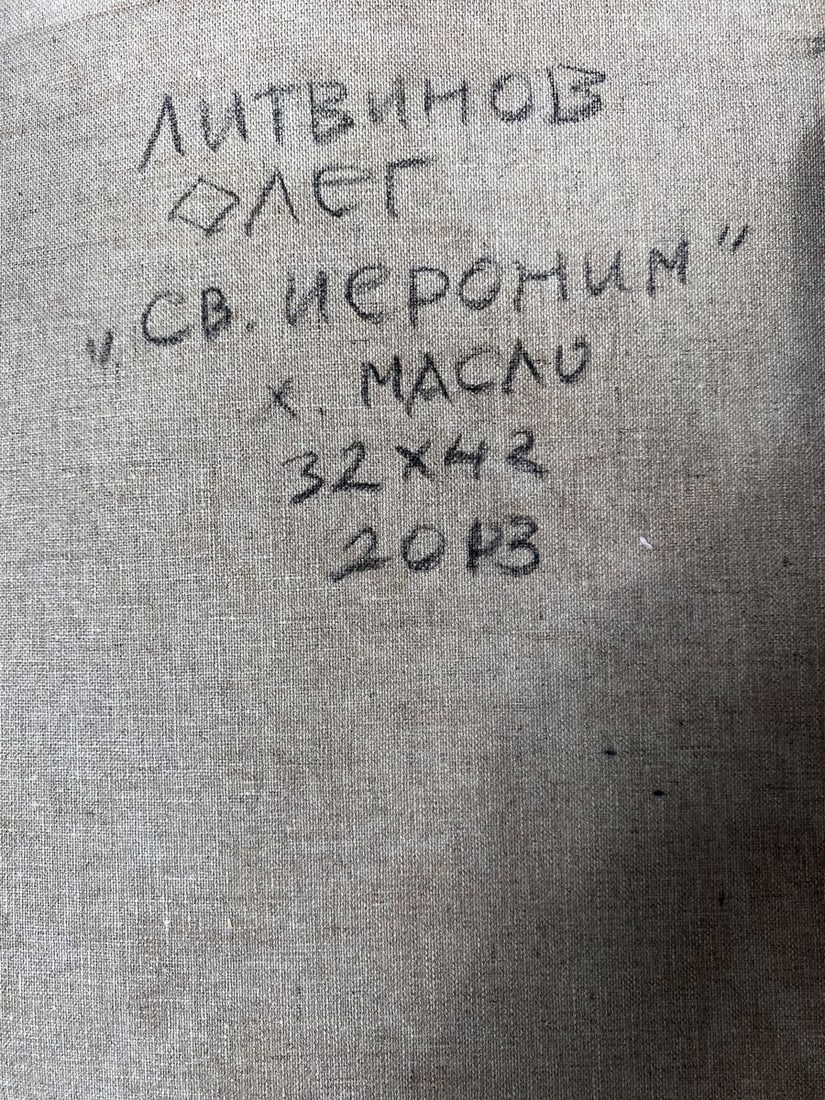 ЛИТВИНОВ
ОЛЕГ
"СВ. ИЕРОНИМ"
х. МАСЛО
32х42